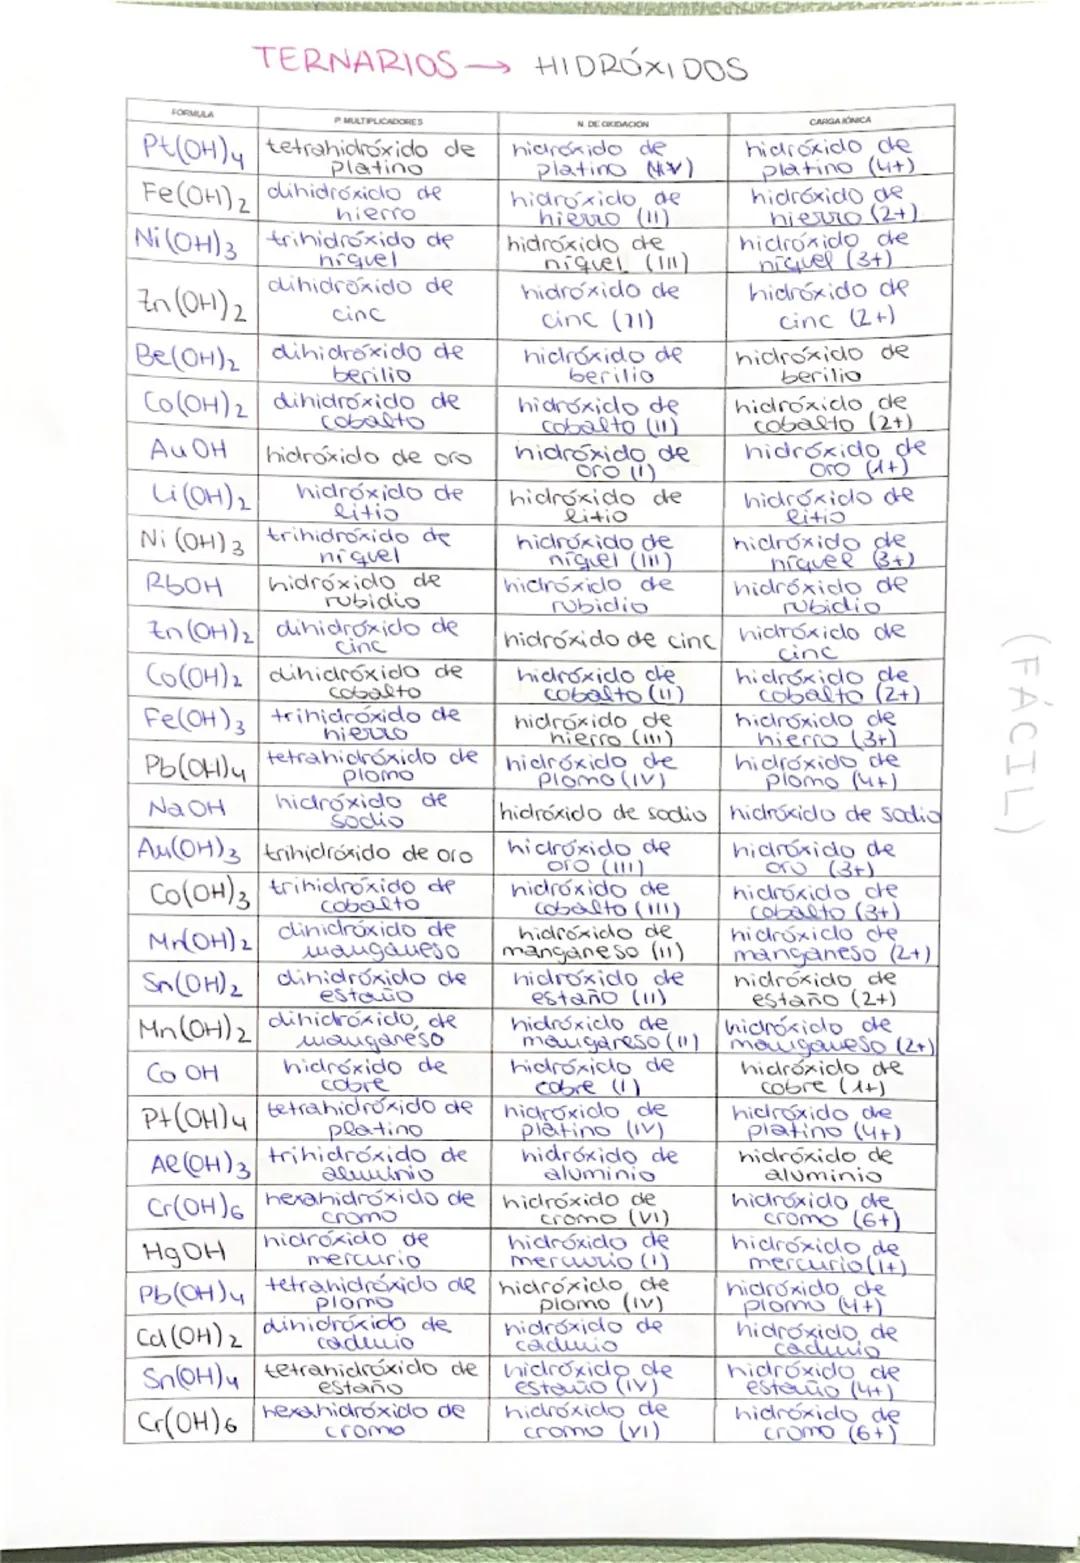 TERNARIOS → HIDRÓXIDOS
FORMULA P. MULTIPLICADORES N. DE OXIDACIÓN CARGA IÓNICA
Pt(OH)4 tetrahidróxido de platino hidróxido de platino (IV) hidróxido de platino (4+)
Fe(OH)2 dihidróxido de hierro hidróxido de hierro (II) hidróxido de hierro (2+)
Ni(OH)3 trihidróxido de níquel hidróxido de níquel (III) hidróxido de níquel (3+)
Zn(OH)2 dihidróxido de cinc hidróxido de cinc (II) hidróxido de cinc (2+)
Be(OH)2 dihidróxido de berilio hidróxido de berilio hidróxido de berilio
Co(OH)2 dihidróxido de cobalto hidróxido de cobalto (II) hidróxido de cobalto (2+)
AuOH hidróxido de oro hidróxido de oro (I) hidróxido de oro (1+)
Li(OH)2 hidróxido de litio hidróxido de litio hidróxido de litio
Ni(OH)3 trihidróxido de níquel hidróxido de níquel (III) hidróxido de níquel (3+)
RbOH hidróxido de rubidio hidróxido de rubidio hidróxido de rubidio
Zn(OH)2 dihidróxido de cinc hidróxido de cinc hidróxido de cinc
Co(OH)2 dihidróxido de cobalto hidróxido de cobalto (II) hidróxido de cobalto (2+)
Fe(OH)3 trihidróxido de hierro hidróxido de hierro (III) hidróxido de hierro (3+)
Pb(OH)4 tetrahidróxido de plomo hidróxido de plomo (IV) hidróxido de plomo (4+)
NaOH hidróxido de sodio hidróxido de sodio hidróxido de sodio
Au(OH)3 trihidróxido de oro hidróxido de oro (III) hidróxido de oro (3+)
Co(OH)3 trihidróxido de cobalto hidróxido de cobalto (III) hidróxido de cobalto (3+)
Mn(OH)2 dihidróxido de manganeso hidróxido de manganeso (II) hidróxido de manganeso (2+)
Sn(OH)2 dihidróxido de estaño hidróxido de estaño (II) hidróxido de estaño (2+)
Mn(OH)2 dihidróxido de manganeso hidróxido de manganeso (II) hidróxido de manganeso (2+)
CoOH hidróxido de cobre hidróxido de cobre (I) hidróxido de cobre (1+)
Pt(OH)4 tetrahidróxido de platino hidróxido de platino (IV) hidróxido de platino (4+)
Al(OH)3 trihidróxido de aluminio hidróxido de aluminio hidróxido de aluminio
Cr(OH)6 hexahidróxido de cromo hidróxido de cromo (VI) hidróxido de cromo (6+)
HgOH hidróxido de mercurio hidróxido de mercurio (I) hidróxido de mercurio (1+)
Pb(OH)4 tetrahidróxido de plomo hidróxido de plomo (IV) hidróxido de plomo (4+)
Cd(OH)2 dihidróxido de cadmio hidróxido de cadmio hidróxido de cadmio
Sn(OH)4 tetrahidróxido de estaño hidróxido de estaño (IV) hidróxido de estaño (4+)
Cr(OH)6 hexahidróxido de cromo hidróxido de cromo (VI) hidróxido de cromo (6+)
(FÁCIL)